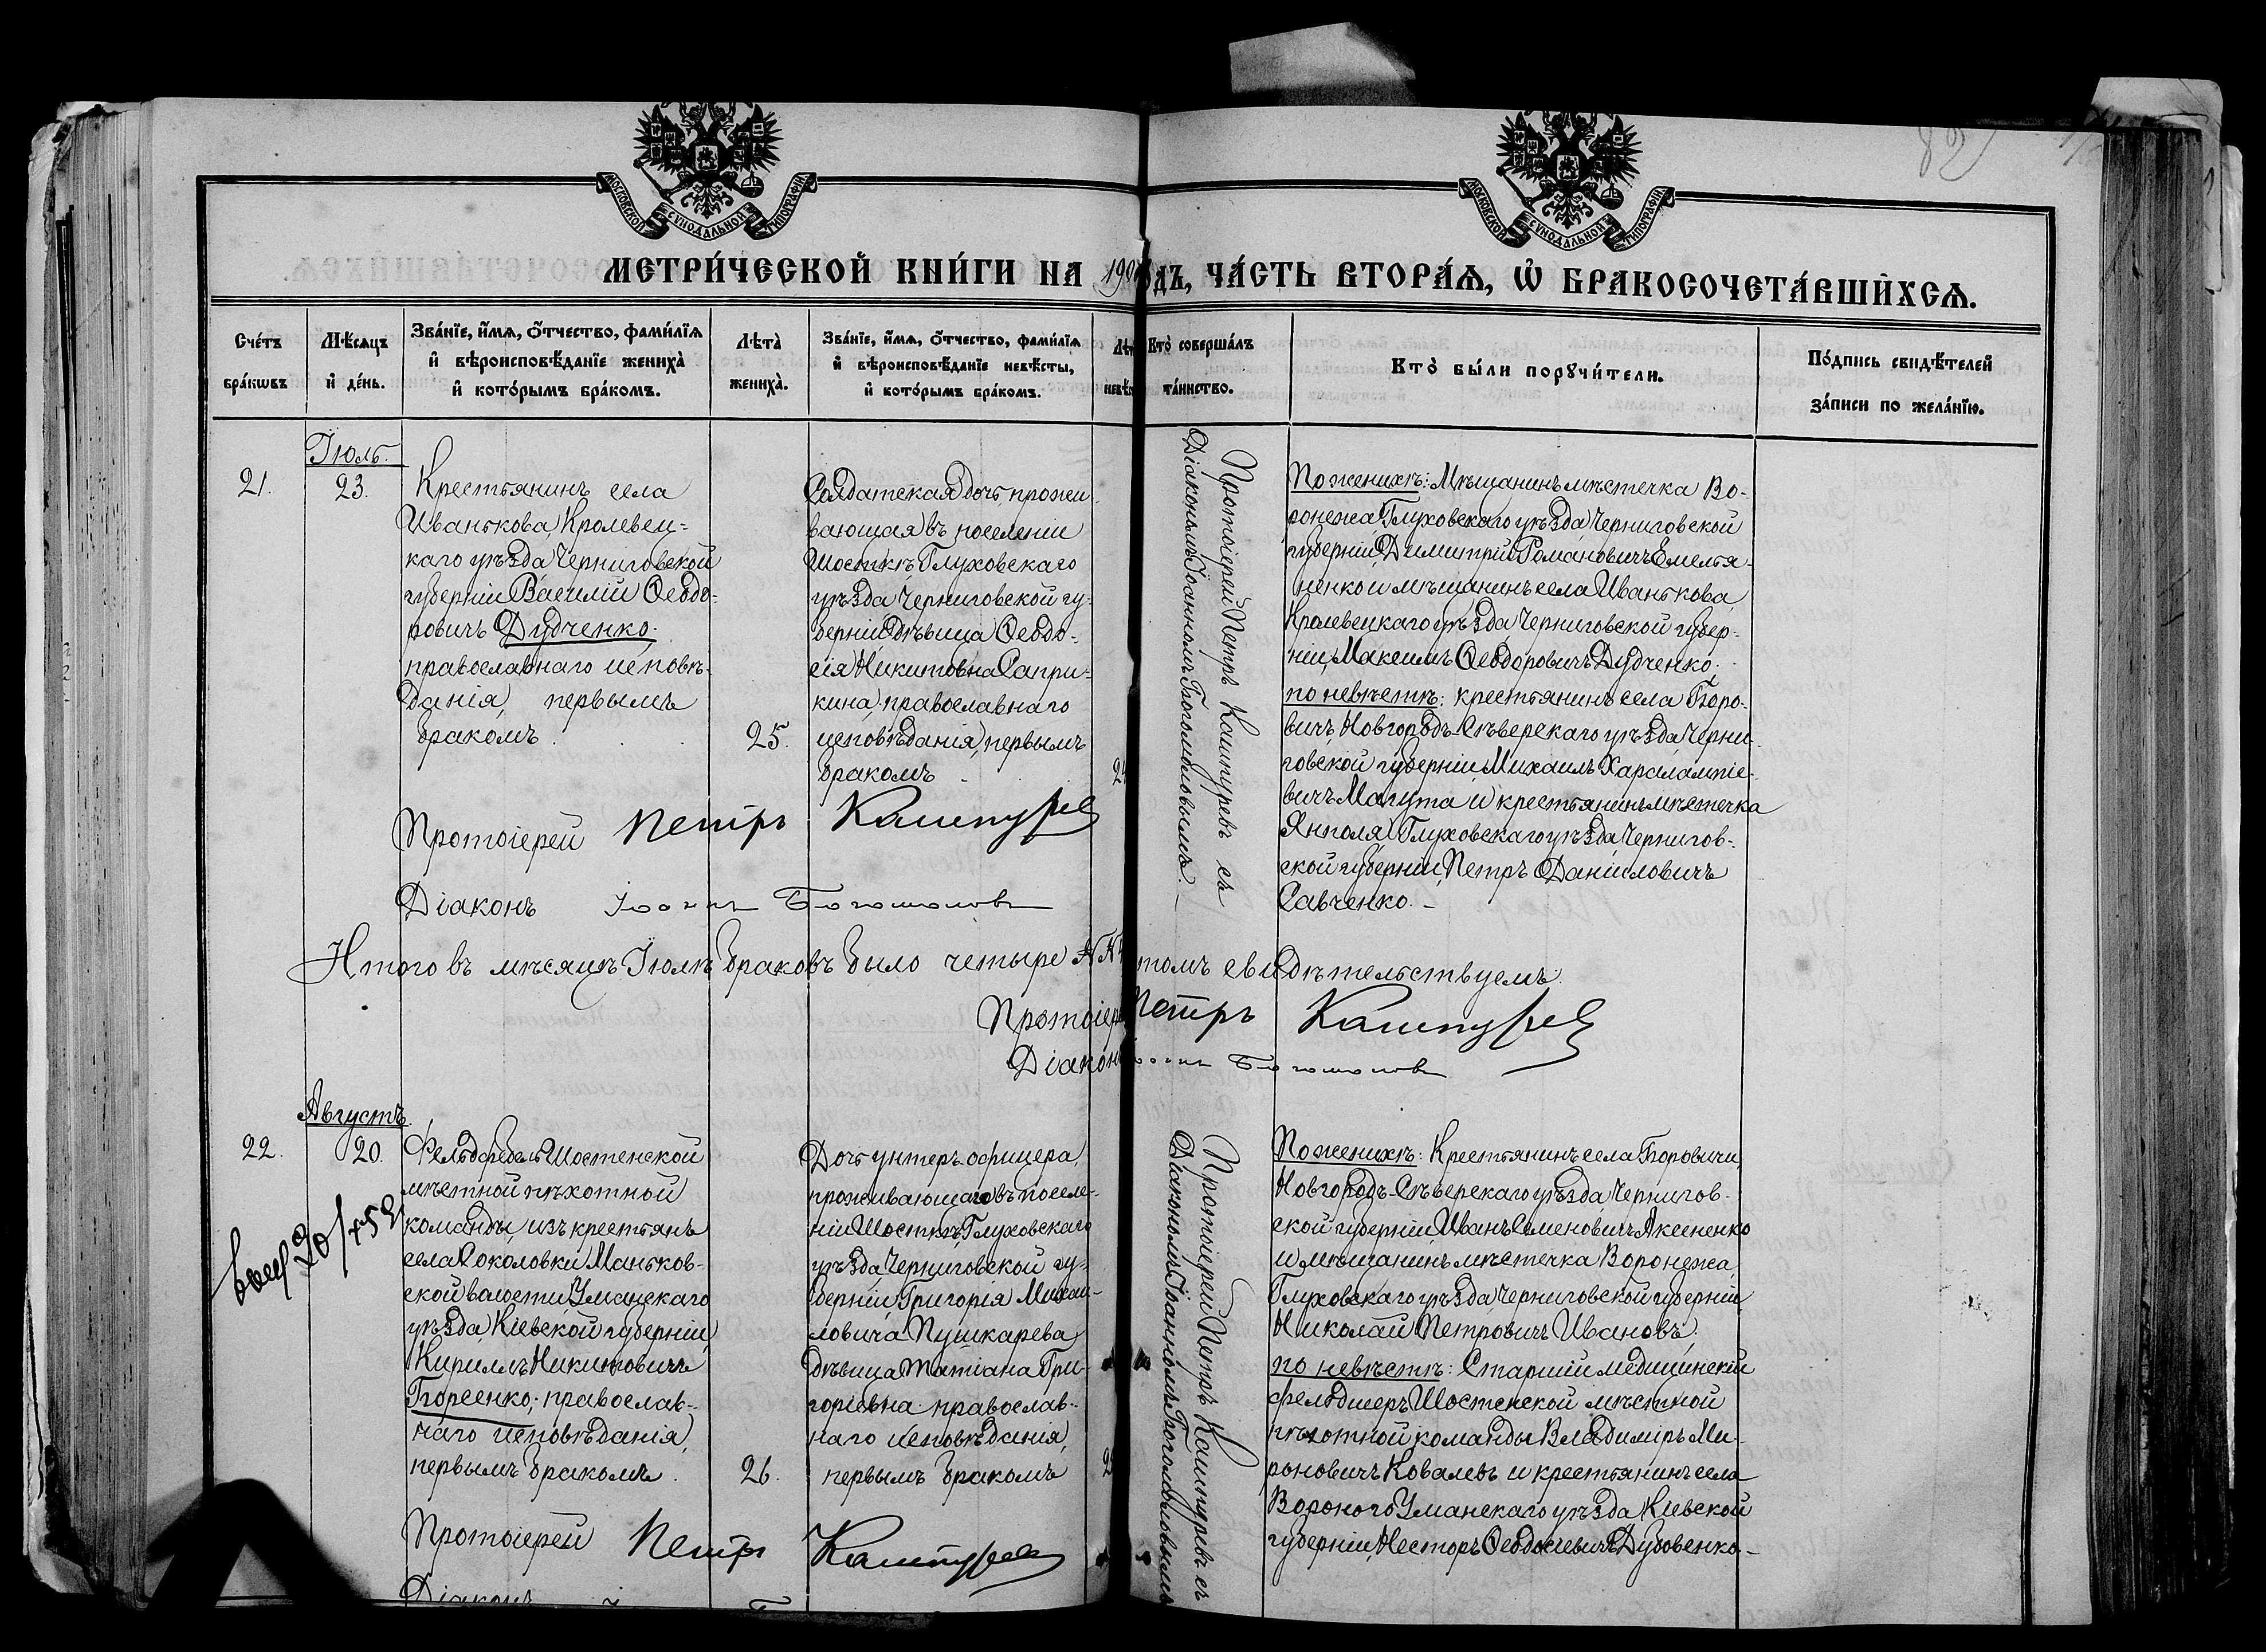 МОСКОВСКОЙ СѴНОДАЛЬНОЙ ТИПОГРАФІИ
МОСКОВСКОЙ СѴНОДАЛЬНОЙ ТИПОГРАФІИ
82
МЕТРИ́ЧЕСКОЙ КНИ́ГИ НА 190 дъ, ЧА́СТЬ ВТОРА́Ѧ, Ѡ҆ БРАКОСОЧЕТА́ВШИХСѦ.
Сче́тъ бра́кѡвъ
Мѣ́сѧцъ и҆ де́нь.
Зва́нїе, и҆́мѧ, ѻ҆́тчество, фами́лїѧ
и҆ вѣроисповѣ́данїе женихà
и҆ кото́рымъ бра́комъ.
Лѣтà женихà.
Зва́нїе, и҆́мѧ, ѻ҆́тчество, фами́лїѧ
и҆ вѣроисповѣ́данїе невѣ́сты,
и҆ кото́рымъ бра́комъ.
Кто̀ соверша́лъ
та́инство.
Кто̀ бы́ли порꙋчи́тели.
По́дпись свидѣ́телей
за́писи по жела́нїю.
Іюль.
21.
23.
Крестьянинъ села
Иванькова, Кролевец-
каго уѣзда Черниговской
губерніи Василій Ѳеодо-
ровичъ Дудченко.
православнаго исповѣ-
данія, первымъ
бракомъ
25.
Солдатская дочь, прожи-
вающая въ поселеніи
Шосткѣ Глуховскаго
уѣзда Черниговской гу-
берніи дѣвица Ѳеодо-
сія Никитовна Сапри-
кина, православнаго
исповѣданія, первымъ
бракомъ
Протоіерей Петръ Кашпуревъ съ
Діакономъ Іоанномъ Богомоловымъ.
По женихѣ: Мѣщанинъ мѣстечка Во-
ронежа Глуховскаго уѣзда, Черниговской
губерніи, Димитрій Романовичъ Емелья-
ненко и мѣщанинъ села Иванькова,
Кролевецкаго уѣзда Черниговской губер-
ніи, Максимъ Ѳеодоровичъ Дудченко.
по невѣстѣ: крестьянинъ села Боро-
вичъ Новгородъ-Сѣверскаго уѣзда Черни-
говской губерніи, Михаилъ Харалампіе-
вичъ Магута и крестьянинъ мѣстечка
Янполя, Глуховскаго уѣзда, Чернигов-
ской губерніи, Петръ Даніиловичъ
Савченко.
Протоіерей Петръ Кашпуревъ
Діаконъ Іоаннъ Богомоловъ
Итого въ мѣсяцѣ Іюлѣ браковъ было четыре томъ свидѣтельствуемъ.
Протоіерей Петръ Кашпуревъ
Діаконъ Іоаннъ Богомоловъ
Августъ.
22.
20.
Фельдфебель Шостенской
мѣстной пѣхотной
команды, изъ крестьянъ
села Соколовки, Маньков-
ской волости, Уманскаго
уѣзда, Кіевской губерніи,
Кириллъ Никитовичъ
Борсенко, православ-
наго исповѣданія,
первымъ бракомъ.
26.
Дочь унтеръ-офицера,
проживающаго въ поселе-
ніи Шосткѣ, Глуховскаго
уѣзда, Черниговской гу-
берніи Григорія Михаи-
ловича Пушкарева
дѣвица Татіана Гри-
горіевна православ-
наго исповѣданія,
первымъ бракомъ
Протоіерей Петръ Кашпуревъ съ
Діакономъ Іоанномъ Богомоловымъ
По женихѣ: Крестьянинъ села Боровичи,
Новгородъ-Сѣверскаго уѣзда, Чернигов-
ской губерніи Иванъ Семеновичъ Аксененко
и мѣщанинъ мѣстечка Воронежа,
Глуховскаго уѣзда, Черниговской губерніи
Николай Петровичъ Ивановъ.
по невѣстѣ: Старшій медицинскій
фельдшеръ Шостенской мѣстной
пѣхотной команды Владиміръ Ми-
роновичъ Ковалевъ и крестьянинъ села
Вороного Уманскаго уѣзда Кіевской
губерніи, Несторъ Ѳеодосіевичъ Дубовенко.
Протоіерей Петръ Кашпуревъ
Діаконъ